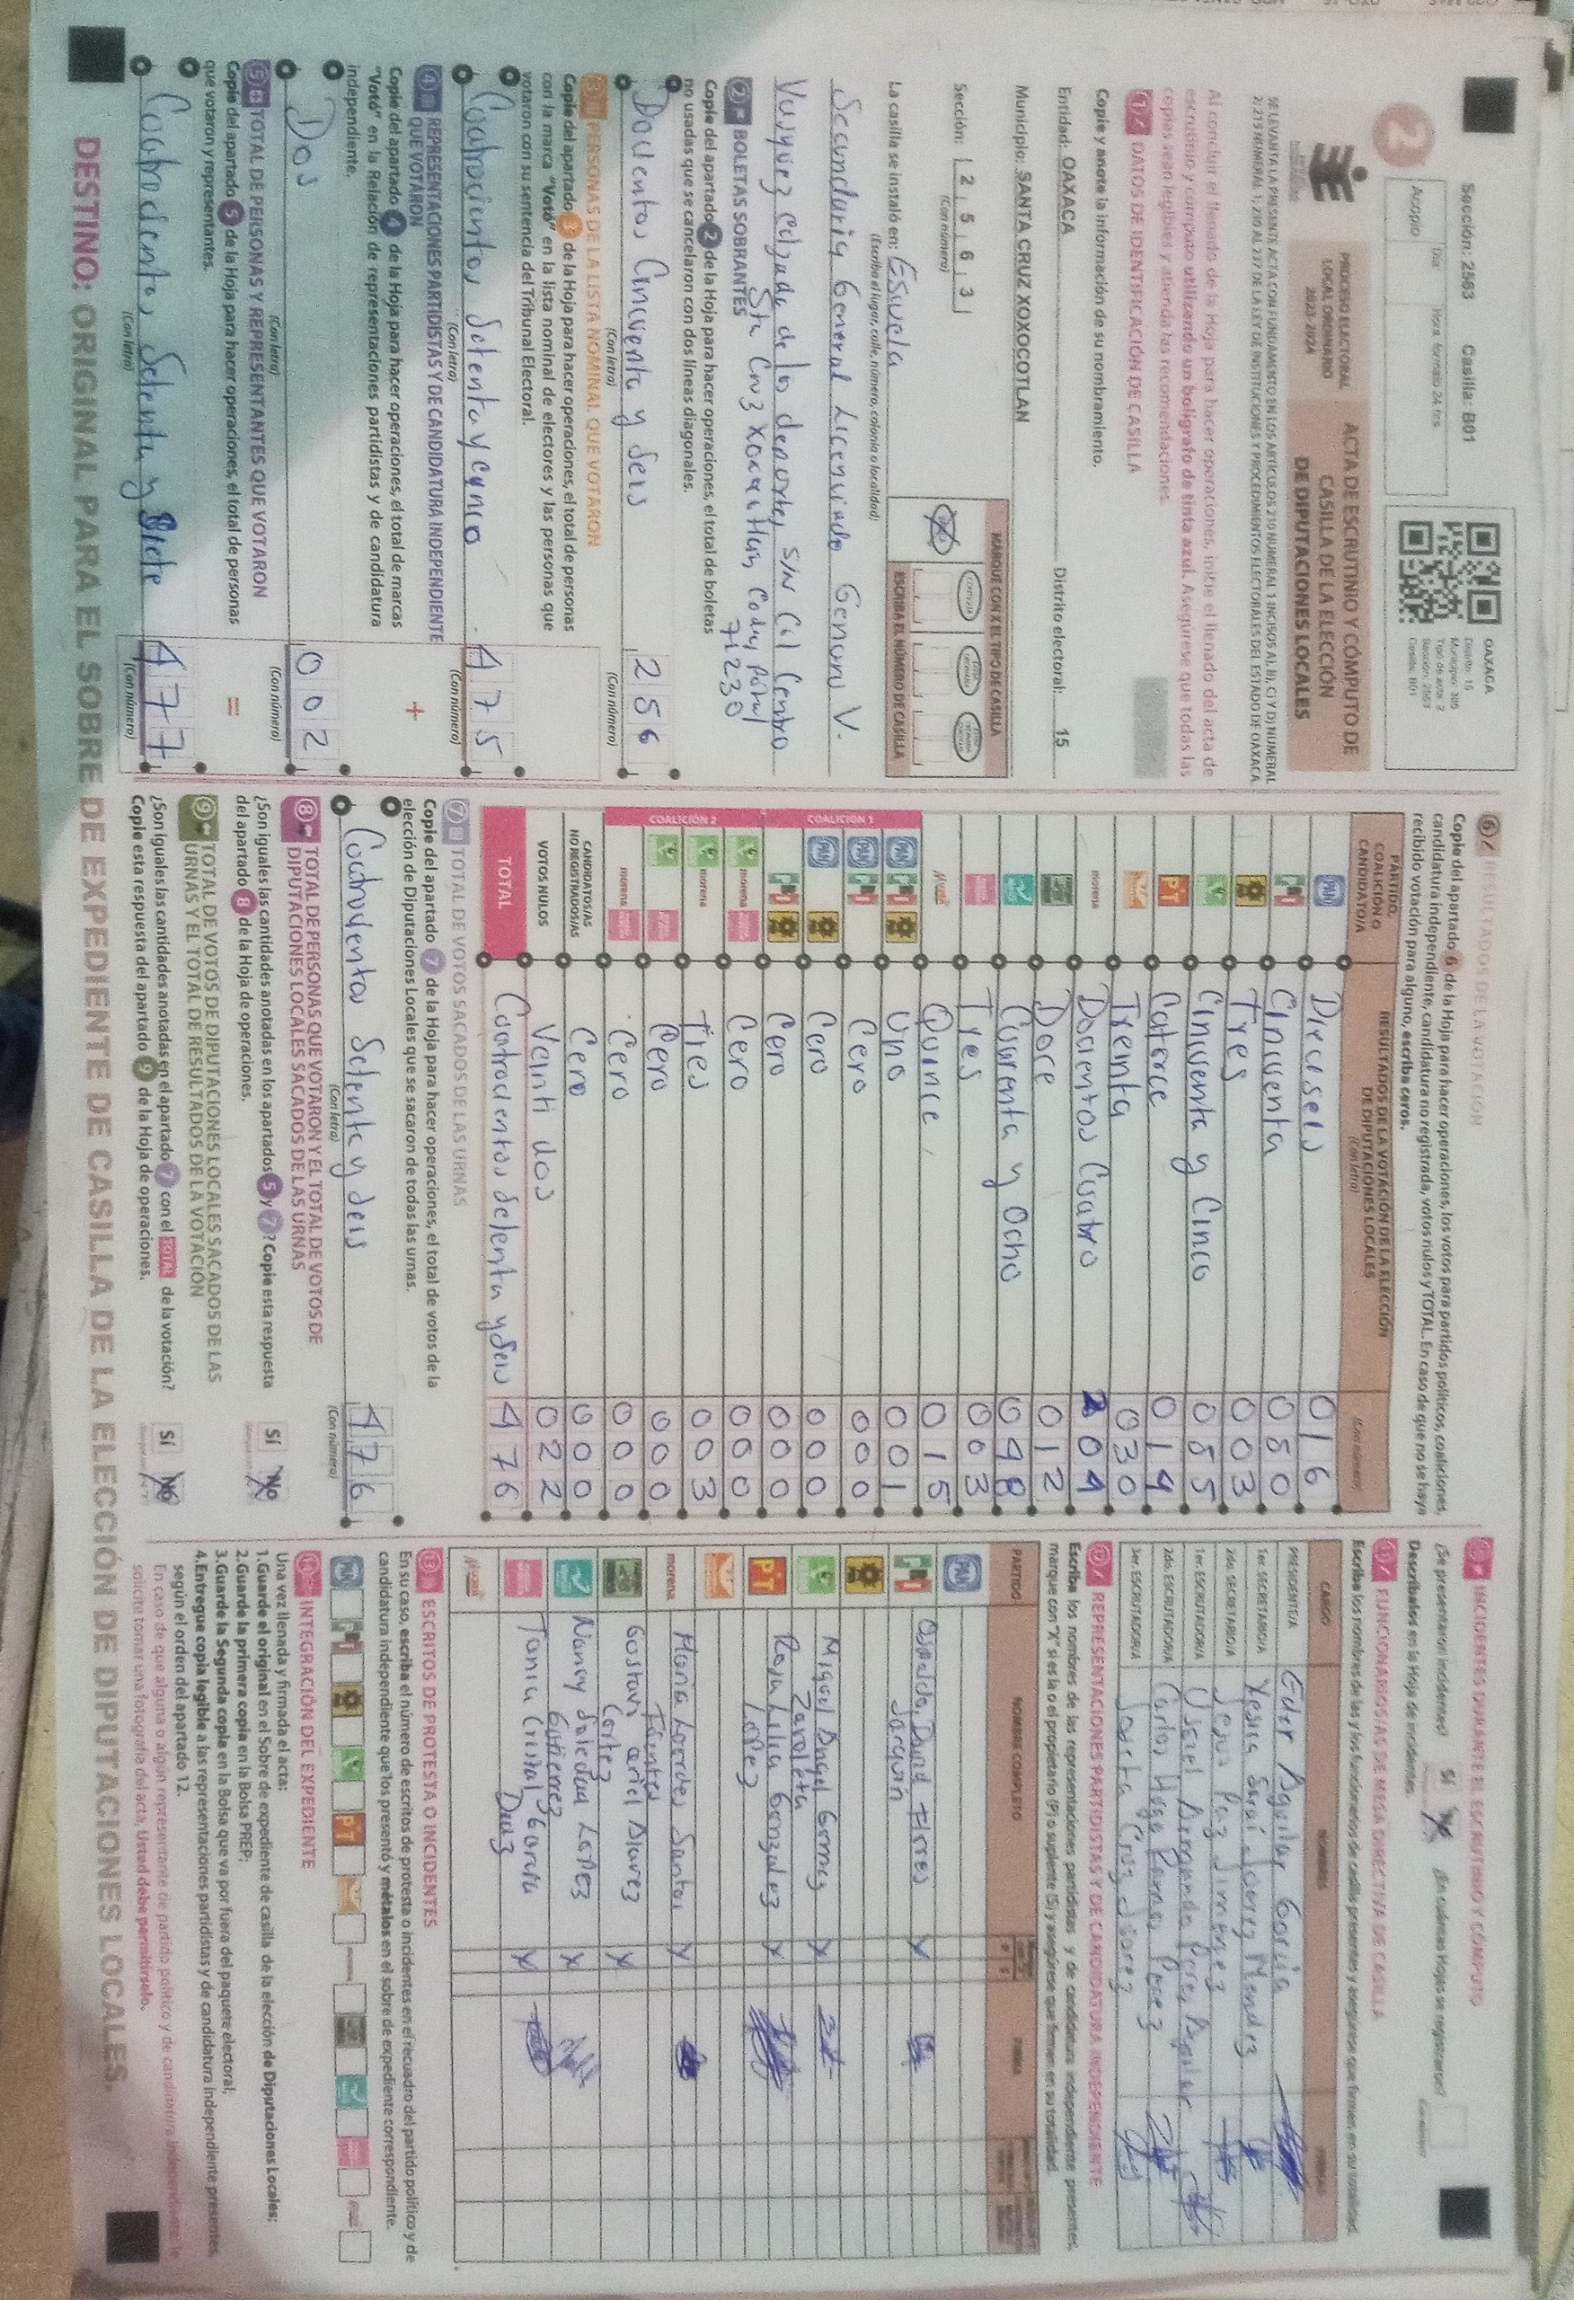 Sección: 2563 Casilla: B01
Acopio
Día
Hora formato 24 hrs
OAXACA
Distrito: 15
Municipio: 385
Tipo de acta: 2
Sección: 2563
Casilla: B01
2
PROCESO ELECTORAL
LOCAL ORDINARIO
2023-2024
ACTA DE ESCRUTINIO Y CÓMPUTO DE
CASILLA DE LA ELECCIÓN
DE DIPUTACIONES LOCALES
Al concluir el llenado de la Hoja para hacer operaciones, inicie el llenado del acta de
escrutinio y cómputo utilizando un bolígrafo de tinta azul. Asegúrese que todas las
copias sean legibles y atienda las recomendaciones.
1 DATOS DE IDENTIFICACIÓN DE CASILLA
Copie y anote la información de su nombramiento.
Entidad: OAXACA Distrito electoral: 15
Municipio: SANTA CRUZ XOXOCOTLAN
Sección: 2 5 6 3
(Con número)
MARQUE CON X EL TIPO DE CASILLA
ESCRIBA EL NÚMERO DE CASILLA
La casilla se instaló en: Escuela
(Escriba el lugar, calle, número, colonia o localidad)
Secundaria General Licenciado Genaro V.
Vasquez calzada de los deportes S/N Col Centro
Sta Cruz
71230
2 BOLETAS SOBRANTES
Copie del apartado 2 de la Hoja para hacer operaciones, el total de boletas
no usadas que se cancelaron con dos líneas diagonales.
Docientos Cincuenta y Seis 2 5 6
(Con letra) (Con número)
3 PERSONAS DE LA LISTA NOMINAL QUE VOTARON
Copie del apartado 3 de la Hoja para hacer operaciones, el total de personas
con la marca "Votó" en la lista nominal de electores y las personas que
votaron con su sentencia del Tribunal Electoral.
Cuatrocientos Setenta y cinco 4 7 5
(Con letra) (Con número)
4 REPRESENTACIONES PARTIDISTAS Y DE CANDIDATURA INDEPENDIENTE
QUE VOTARON
Copie del apartado 4 de la Hoja para hacer operaciones, el total de marcas
"Votó" en la Relación de representaciones partidistas y de candidatura
independiente.
+
Dos 0 0 2
(Con letra) (Con número)
5 TOTAL DE PERSONAS Y REPRESENTANTES QUE VOTARON
Copie del apartado 5 de la Hoja para hacer operaciones, el total de personas
que votaron y representantes.
=
Cuatrocientos Setenta y Siete 4 7 7
(Con letra) (Con número)
6 RESULTADOS DE LA VOTACIÓN
Copie del apartado 6 de la Hoja para hacer operaciones, los votos para partidos políticos, coaliciones,
candidatura independiente, candidatura no registrada, votos nulos y TOTAL. En caso de que no se haya
recibido votación para alguno, escriba ceros.
PARTIDO,
COALICIÓN O
CANDIDATO/A
RESULTADOS DE LA VOTACIÓN DE LA ELECCIÓN
DE DIPUTACIONES LOCALES
(Con letra)
(Con número)
PAN Dieciseis 0 1 6
Cincuenta 0 5 0
Tres 0 0 3
Cincuenta y Cinco 0 5 5
PT Catorce 0 1 4
Treinta 0 3 0
morena Docientos Cuatro 2 0 4
Doce 0 1 2
Cuarenta y Ocho 0 4 8
Tres 0 0 3
Quince 0 1 5
COALICIÓN 1
Uno 0 0 1
Cero 0 0 0
Cero 0 0 0
Cero 0 0 0
COALICIÓN 2
Cero 0 0 0
Tres 0 0 3
Cero 0 0 0
Cero 0 0 0
CANDIDATOS/AS
NO REGISTRADOS/AS Cero 0 0 0
VOTOS NULOS Veinti dos 0 2 2
TOTAL Cuatrocientos Setenta y Seis 4 7 6
7 TOTAL DE VOTOS SACADOS DE LAS URNAS
Copie del apartado 7 de la Hoja para hacer operaciones, el total de votos de la
elección de Diputaciones Locales que se sacaron de todas las urnas.
Cuatrocientos Setenta y Seis 4 7 6
(Con letra) (Con número)
8 TOTAL DE PERSONAS QUE VOTARON Y EL TOTAL DE VOTOS DE
DIPUTACIONES LOCALES SACADOS DE LAS URNAS
¿Son iguales las cantidades anotadas en los apartados 5 y 7? Copie esta respuesta
del apartado 8 de la Hoja de operaciones.
Sí No
9 TOTAL DE VOTOS DE DIPUTACIONES LOCALES SACADOS DE LAS
URNAS Y EL TOTAL DE RESULTADOS DE LA VOTACIÓN
¿Son iguales las cantidades anotadas en el apartado 7 con el TOTAL de la votación?
Copie esta respuesta del apartado 9 de la Hoja de operaciones.
Sí No
INCIDENTES DURANTE EL ESCRUTINIO Y CÓMPUTO
¿Se presentaron incidentes? Sí No ¿En cuántas Hojas se registraron?
Descríbalos en la Hoja de incidentes.
FUNCIONARIOS/AS DE MESA DIRECTIVA DE CASILLA
Escriba los nombres de las y los funcionarios de casilla presentes y asegúrese que firmen en su totalidad.
CARGO NOMBRES FIRMAS
PRESIDENTE/A Eder Aguilar García
1er. SECRETARIO/A Yesica Sarai Mendez
2do. SECRETARIO/A Jesus Paz Jimenez
1er. ESCRUTADOR/A Perez Aguilar
2do. ESCRUTADOR/A Carlos Hugo Perez
3er. ESCRUTADOR/A Cruz Juarez
REPRESENTACIONES PARTIDISTAS Y DE CANDIDATURA INDEPENDIENTE
Escriba los nombres de las representaciones partidistas y de candidatura independiente presentes,
marque con "X" si es la o el propietario (P) o suplente (S) y asegúrese que firmen en su totalidad.
PARTIDO NOMBRE COMPLETO FIRMA
Osvaldo David Flores
Jarquin X
Miguel Angel Gomez
Zarateta X
PT Rosa Lilia Gonzalez
Lopez X
morena Maria Lordes Santos
Fuentes X
Gustavo ariel Alavez
Cortez X
Nancy Soledad Lopez
Gutierrez X
Tania Cristal Garcia
Diaz X
ESCRITOS DE PROTESTA O INCIDENTES
En su caso, escriba el número de escritos de protesta o incidentes en el recuadro del partido político y de
candidatura independiente que los presentó y métalos en el sobre de expediente correspondiente.
INTEGRACIÓN DEL EXPEDIENTE
Una vez llenada y firmada el acta:
1.Guarde el original en el Sobre de expediente de casilla de la elección de Diputaciones Locales;
2.Guarde la primera copia en la Bolsa PREP;
3.Guarde la Segunda copia en la Bolsa que va por fuera del paquete electoral;
4.Entregue copia legible a las representaciones partidistas y de candidatura independiente presentes,
según el orden del apartado 12.
En caso de que alguna o algún representante de partido político y de candidatura independiente le
solicite tomar una fotografía del acta, Usted debe permitírselo.
DESTINO: ORIGINAL PARA EL SOBRE DE EXPEDIENTE DE CASILLA DE LA ELECCIÓN DE DIPUTACIONES LOCALES.